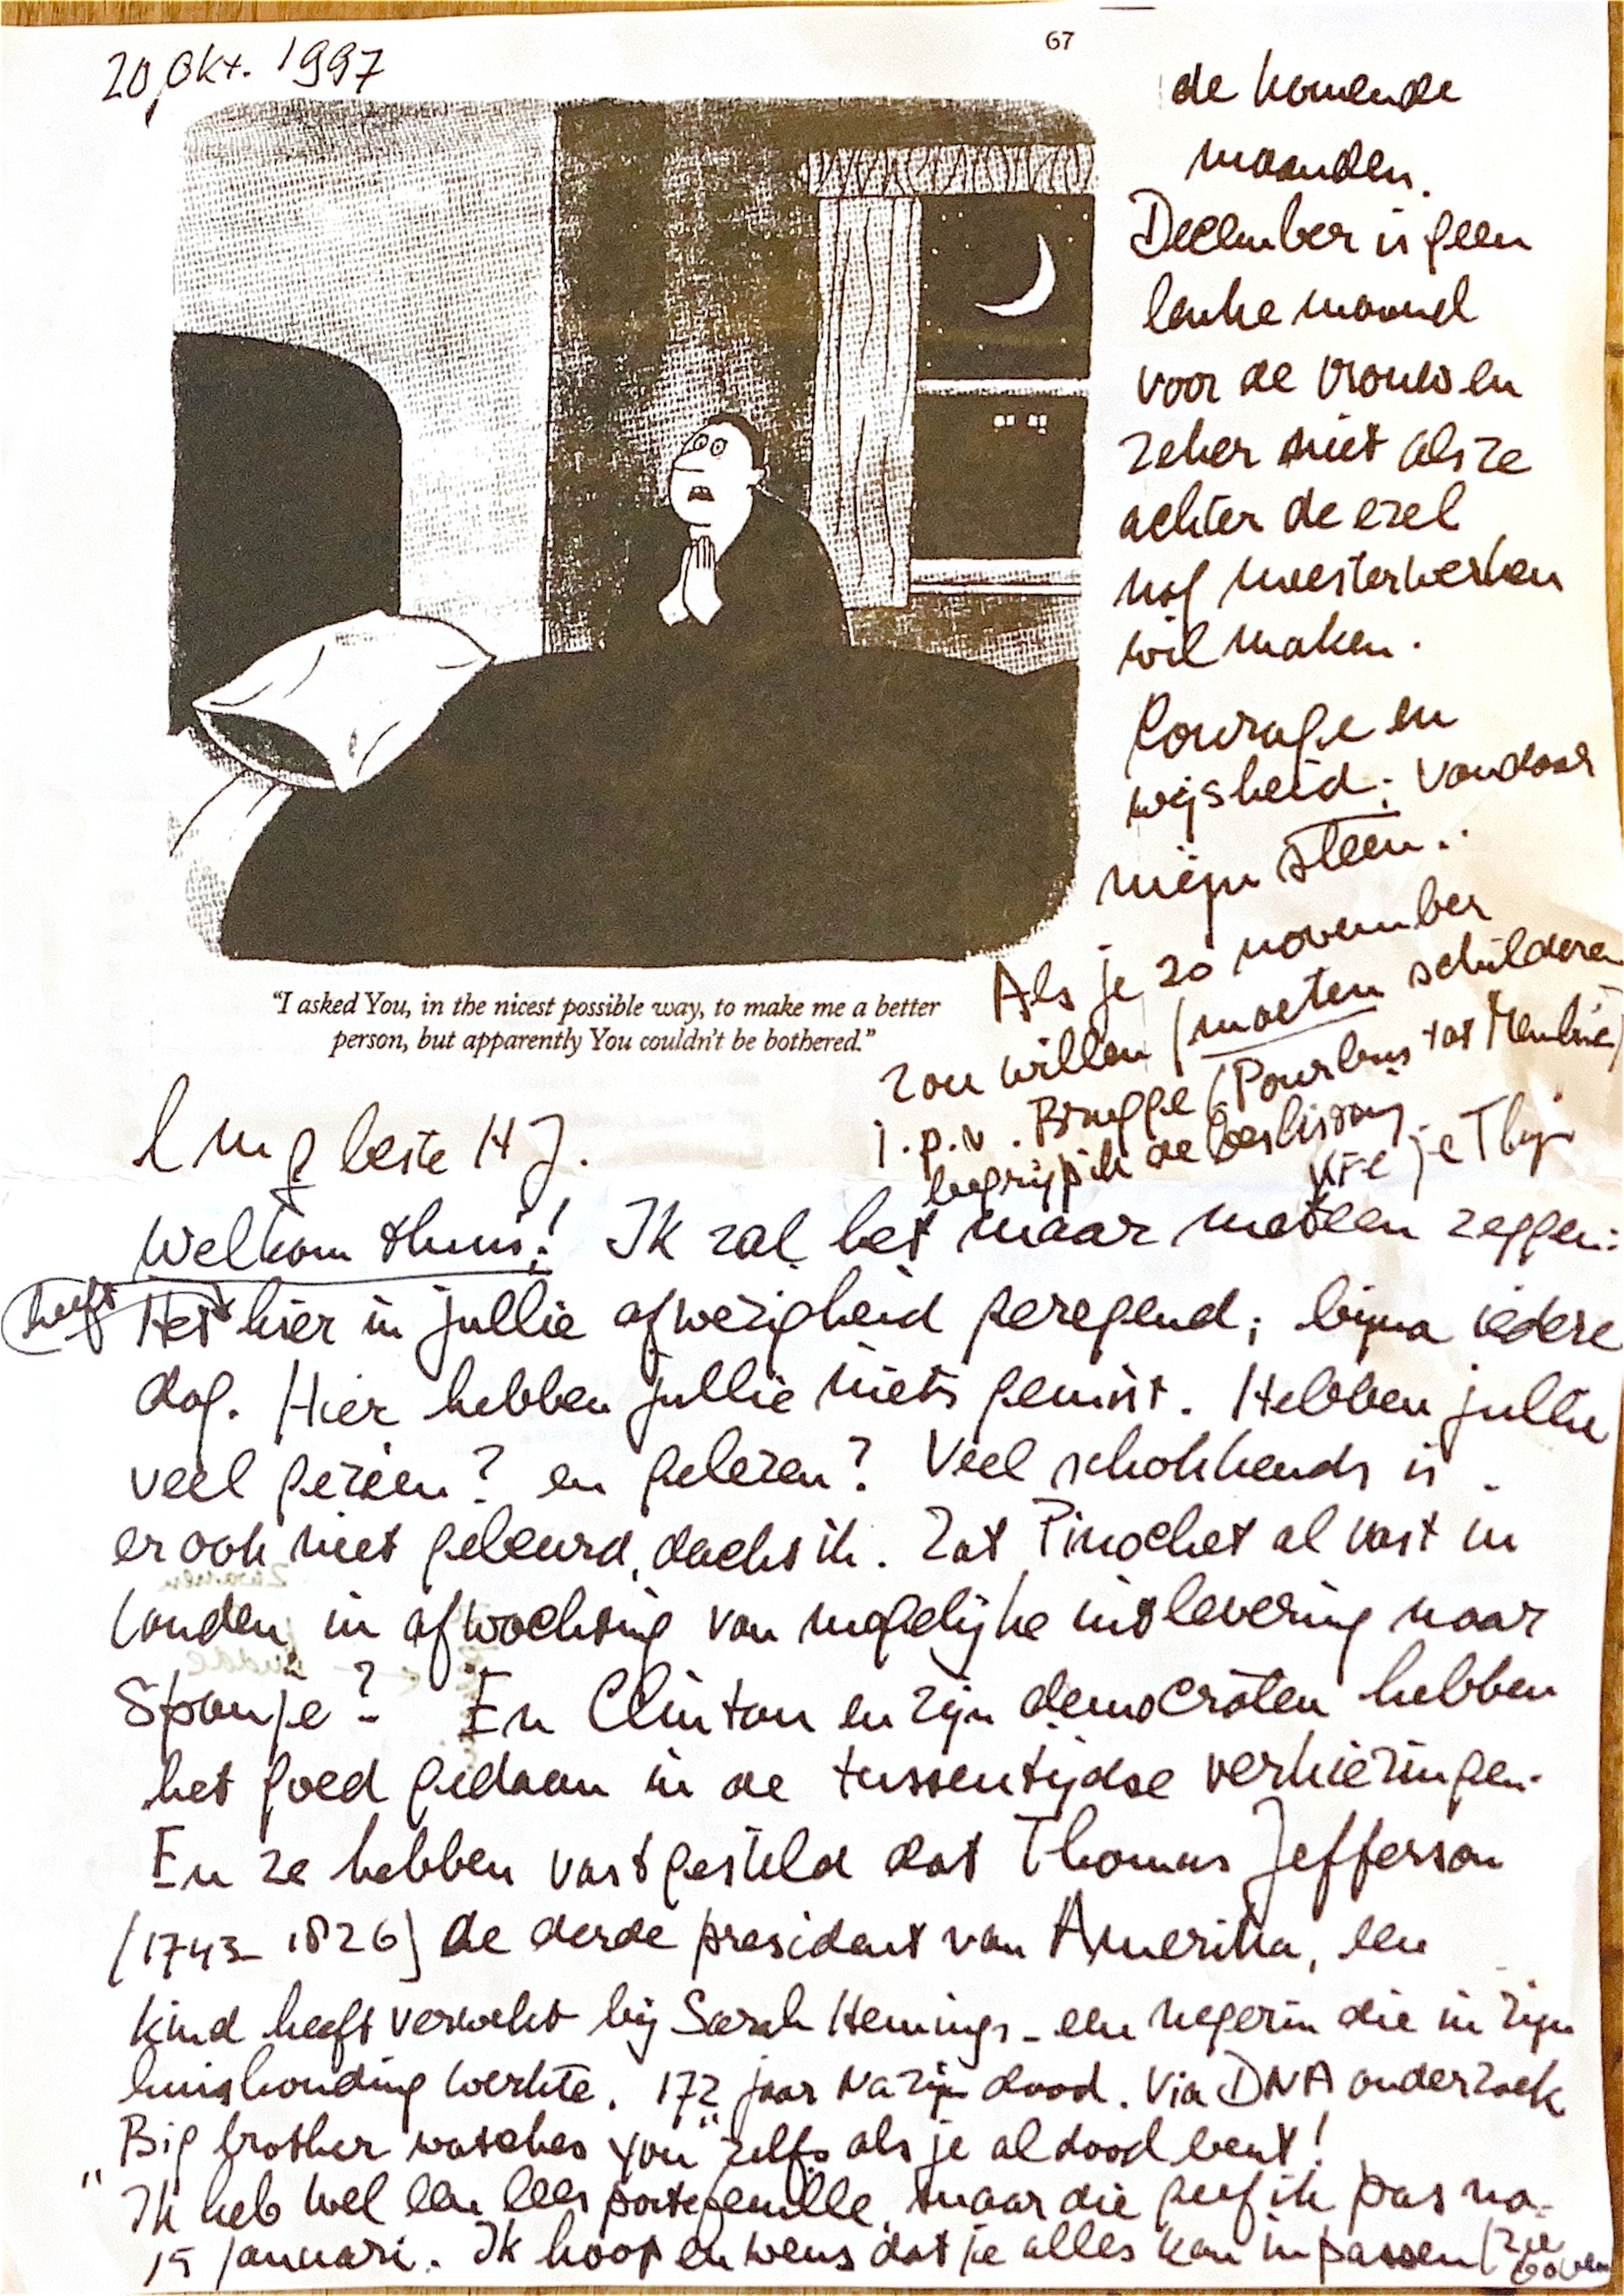 20 Okt. 1997
67
"I asked You, in the nicest possible way, to make me a better
person, but apparently You couldn't be bothered."
beste HJ.
Welkom thuis! Ik zal het maar meteen zeggen:
Het heeft hier in jullie afwezigheid geregend; bijna iedere
dag. Hier hebben jullie niets gemist. Hebben jullie
veel gezien? en gelezen? Veel schokkends is
er ook niet gebeurd, dacht ik. Zat Pinochet al vast in
Londen in afwachting van mogelijke uitlevering naar
Spanje? En Clinton en zijn democraten hebben
het goed gedaan in de tussentijdse verkiezingen.
En ze hebben vastgesteld dat Thomas Jefferson
(1743-1826) de derde president van Amerika, een
kind heeft verwekt bij Sarah Hemings - een negerin die in zijn
huishouding werkte. 172 jaar na zijn dood. Via DNA onderzoek
"Big brother watches you" zelfs als je al dood bent!
Ik heb wel een leesportefeuille, maar die geef ik pas na
15 januari. Ik hoop en wens dat je alles kan inpassen (zie boven
de komende
maanden.
December is geen
leuke maand
voor de vrouw en
zeker niet als ze
achter de ezel
nog meesterwerken
wil maken.
Courage en
wijsheid; vandaar
mijn steen.
Als je 20 november
zou willen / moeten schilderen
i.p.v. Brugge (Pourbus tot Memlinc)
begrijp ik de beslissing.
je Thijs